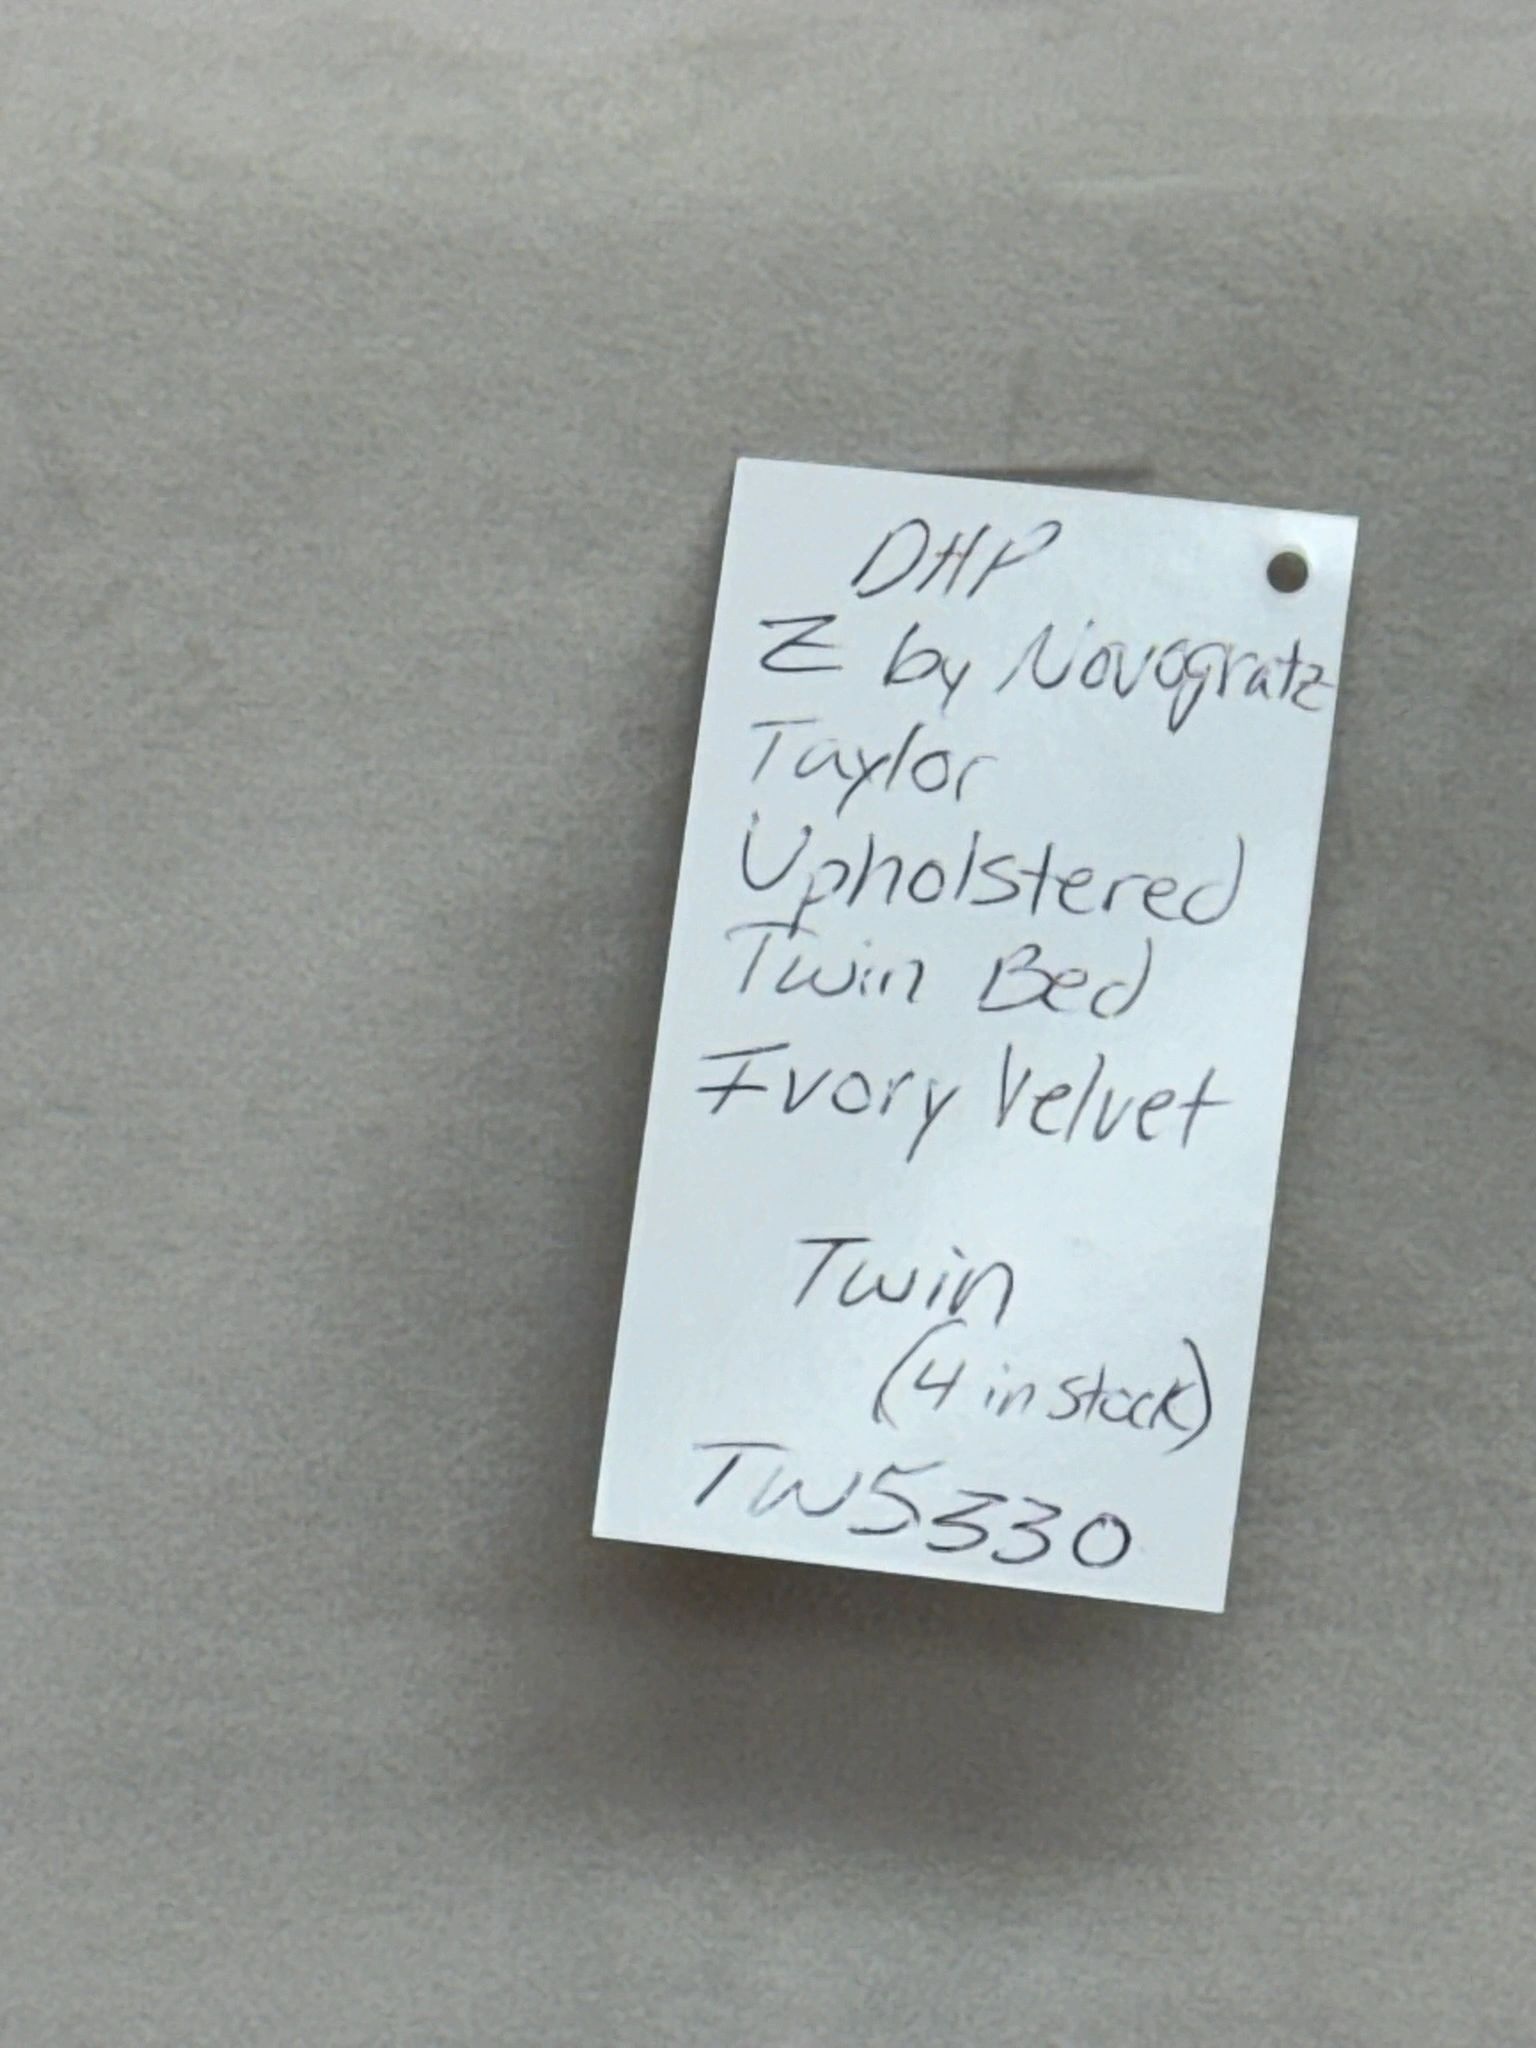 DHP
Z by Novogratz
Taylor
Upholstered
Twin Bed
Ivory Velvet
Twin
(4 in stock)
TW5330